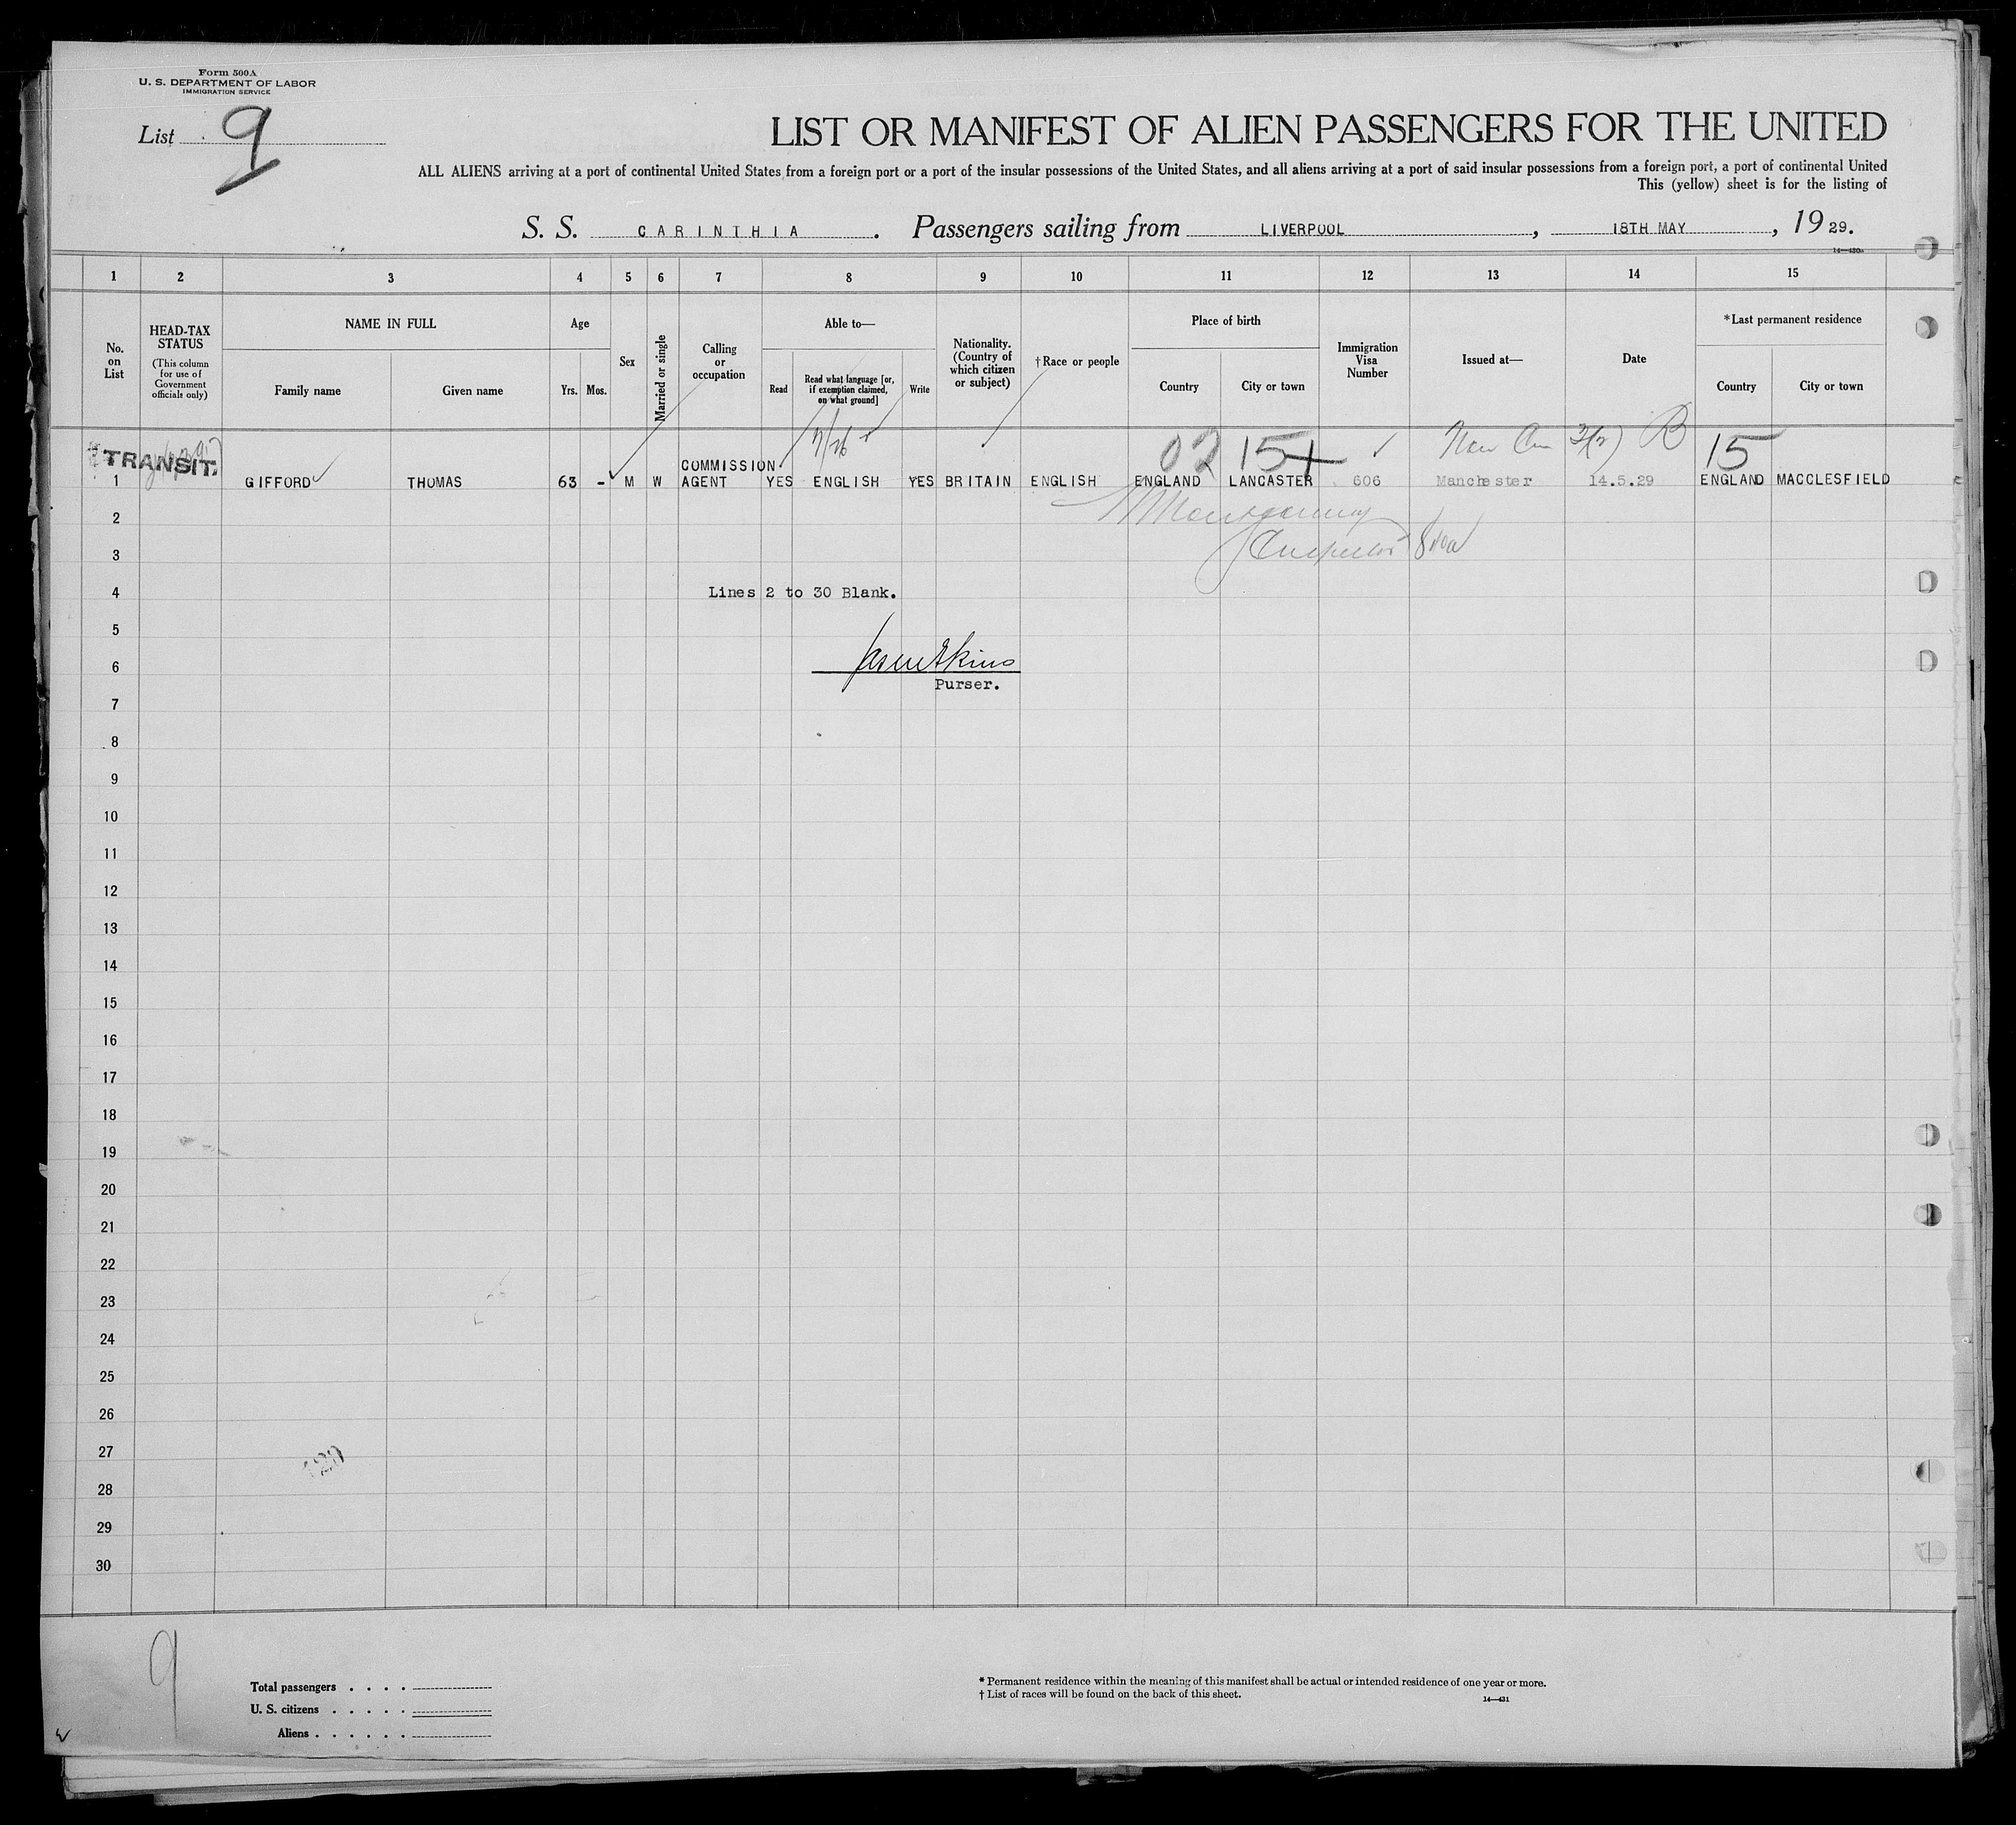 Form 500A
U. S. DEPARTMENT OF LABOR
IMMIGRATION SERVICE
List 9
LIST OR MANIFEST OF ALIEN PASSENGERS FOR THE UNITED
ALL ALIENS arriving at a port of continental United States from a foreign port or a port of the insular possessions of the United States, and all aliens arriving at a port of said insular possessions from a foreign port, a port of continental United
This (yellow) sheet is for the listing of
S. S. CARINTHIA. Passengers sailing from LIVERPOOL, 18TH MAY, 1929.
1 2 3 4 5 6 7 8 9 10 11 12 13 14 15
No. on List
HEAD-TAX STATUS
(This column for use of Government officials only)
NAME IN FULL
Family name
Given name
Age
Yrs. Mos.
Sex
Married or single
Calling or occupation
Able to—
Read
Read what language [or, if exemption claimed, on what ground]
Write
Nationality. (Country of which citizen or subject)
†Race or people
Place of birth
Country
City or town
Immigration Visa Number
Issued at—
Date
*Last permanent residence
Country
City or town
02 15+ 3(2) B 15
TRANSIT.
1 GIFFORD THOMAS 63 - M W COMMISSION AGENT YES ENGLISH YES BRITAIN ENGLISH ENGLAND LANCASTER 606 Manchester 14.5.29 ENGLAND MACCLESFIELD
2 Montgomery
3 Inspector
4 Lines 2 to 30 Blank.
5
6
Purser.
7
8
9
10
11
12
13
14
15
16
17
18
19
20
21
22
23
24
25
26
27
28
29
30
9
Total passengers . . . .
U. S. citizens . . . . .
Aliens . . . . . .
* Permanent residence within the meaning of this manifest shall be actual or intended residence of one year or more.
† List of races will be found on the back of this sheet.
14—431